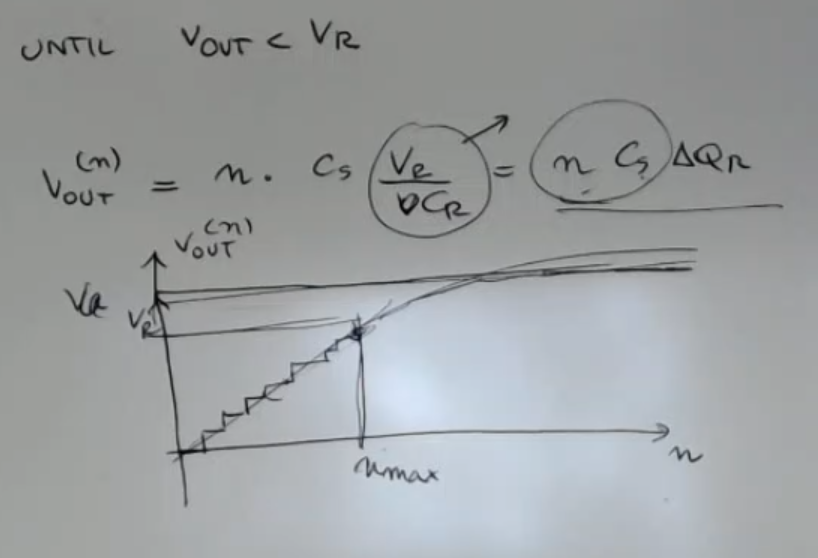 UNTIL VOUT < VR
VOUT(n) = n · CS VR/DCR = n CS ΔQR
VOUT(n)
VR
VR
nmax
n